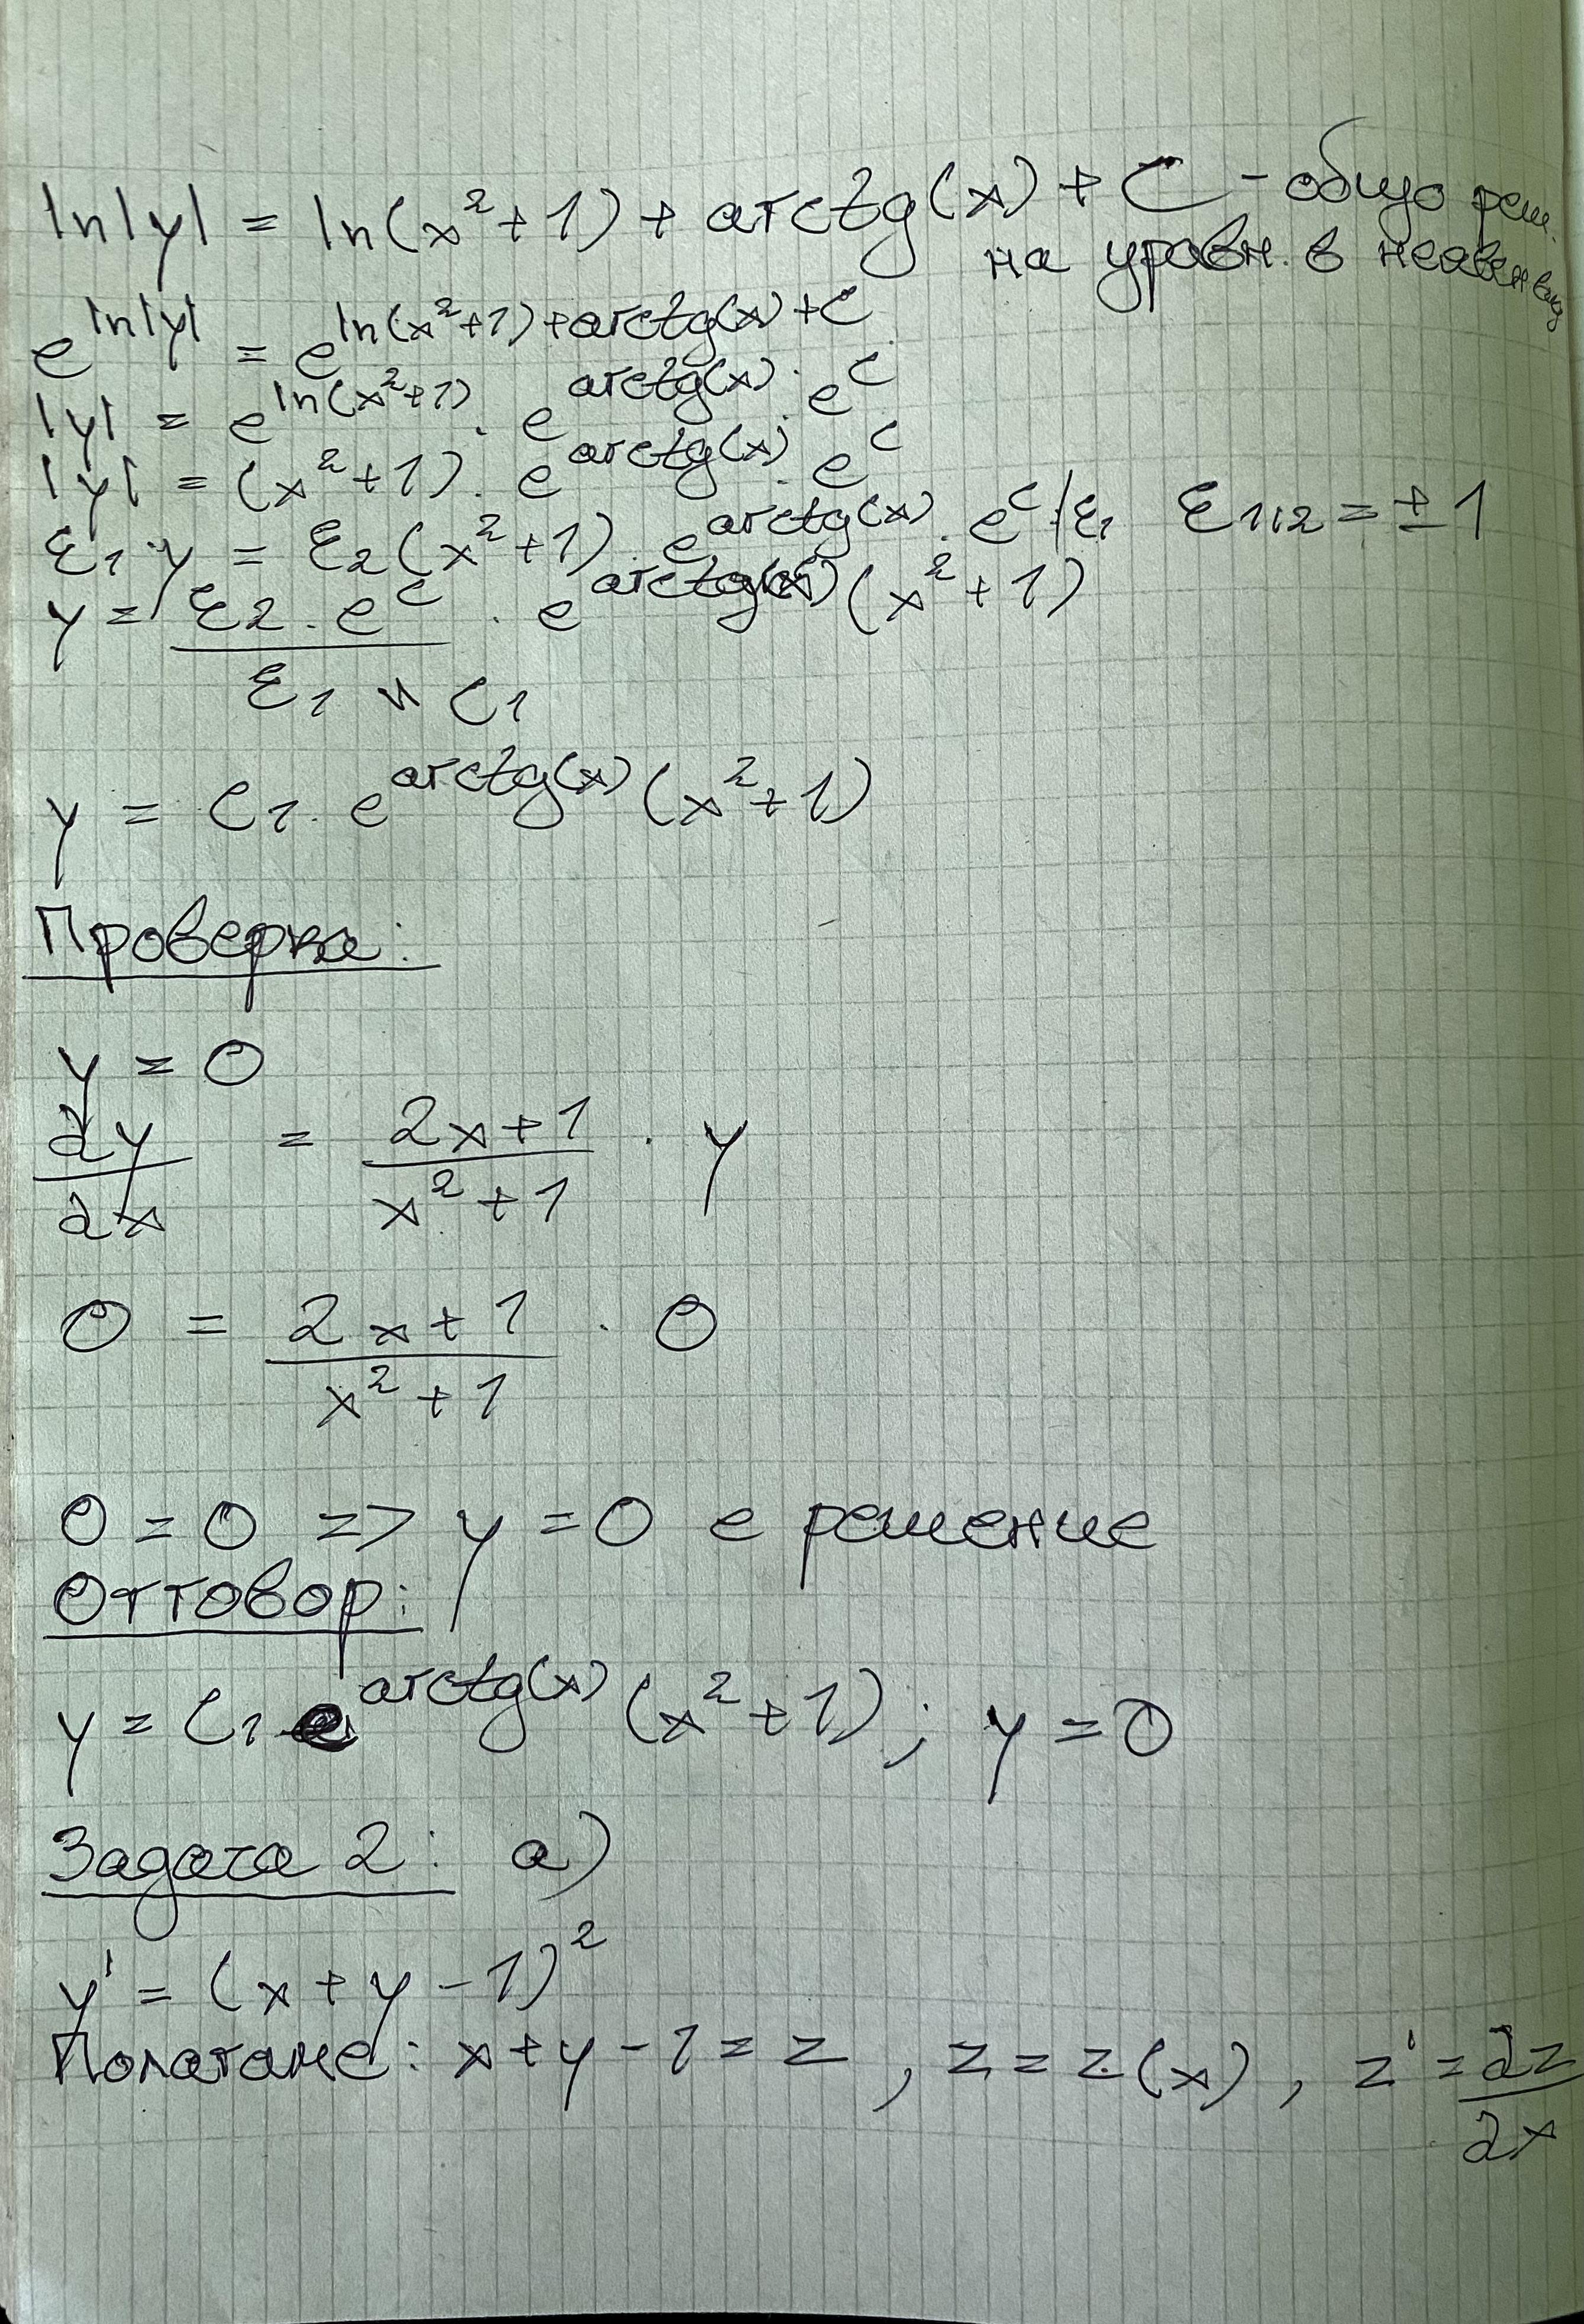 ln|y| = ln(x²+1) + arctg(x) + C - общо реш.
на уравн. в неявен вид
e^(ln|y|) = e^(ln(x²+1)+arctg(x)+C)
|y| = e^(ln(x²+1)) . e^(arctg(x)) . e^C
|y| = (x²+1) . e^(arctg(x)) . e^C
ε₁ . y = ε₂(x²+1) . e^(arctg(x)) . e^C |:ε₁ ε₁,₂ = ±1
y = (ε₂ . e^C)/ε₁ . e^(arctg(x)) (x²+1)
C₁
y = C₁ . e^(arctg(x)) (x²+1)
Проверка:
y = 0
dy/dx = (2x+1)/(x²+1) . y
0 = (2x+1)/(x²+1) . 0
0 = 0 => y = 0 е решение
Оттовор:
y = C₁ e^(arctg(x)) (x²+1) ; y = 0
Задача 2: а)
y' = (x+y-1)²
Полагаме: x+y-1 = z , z = z(x) , z' = dz/dx